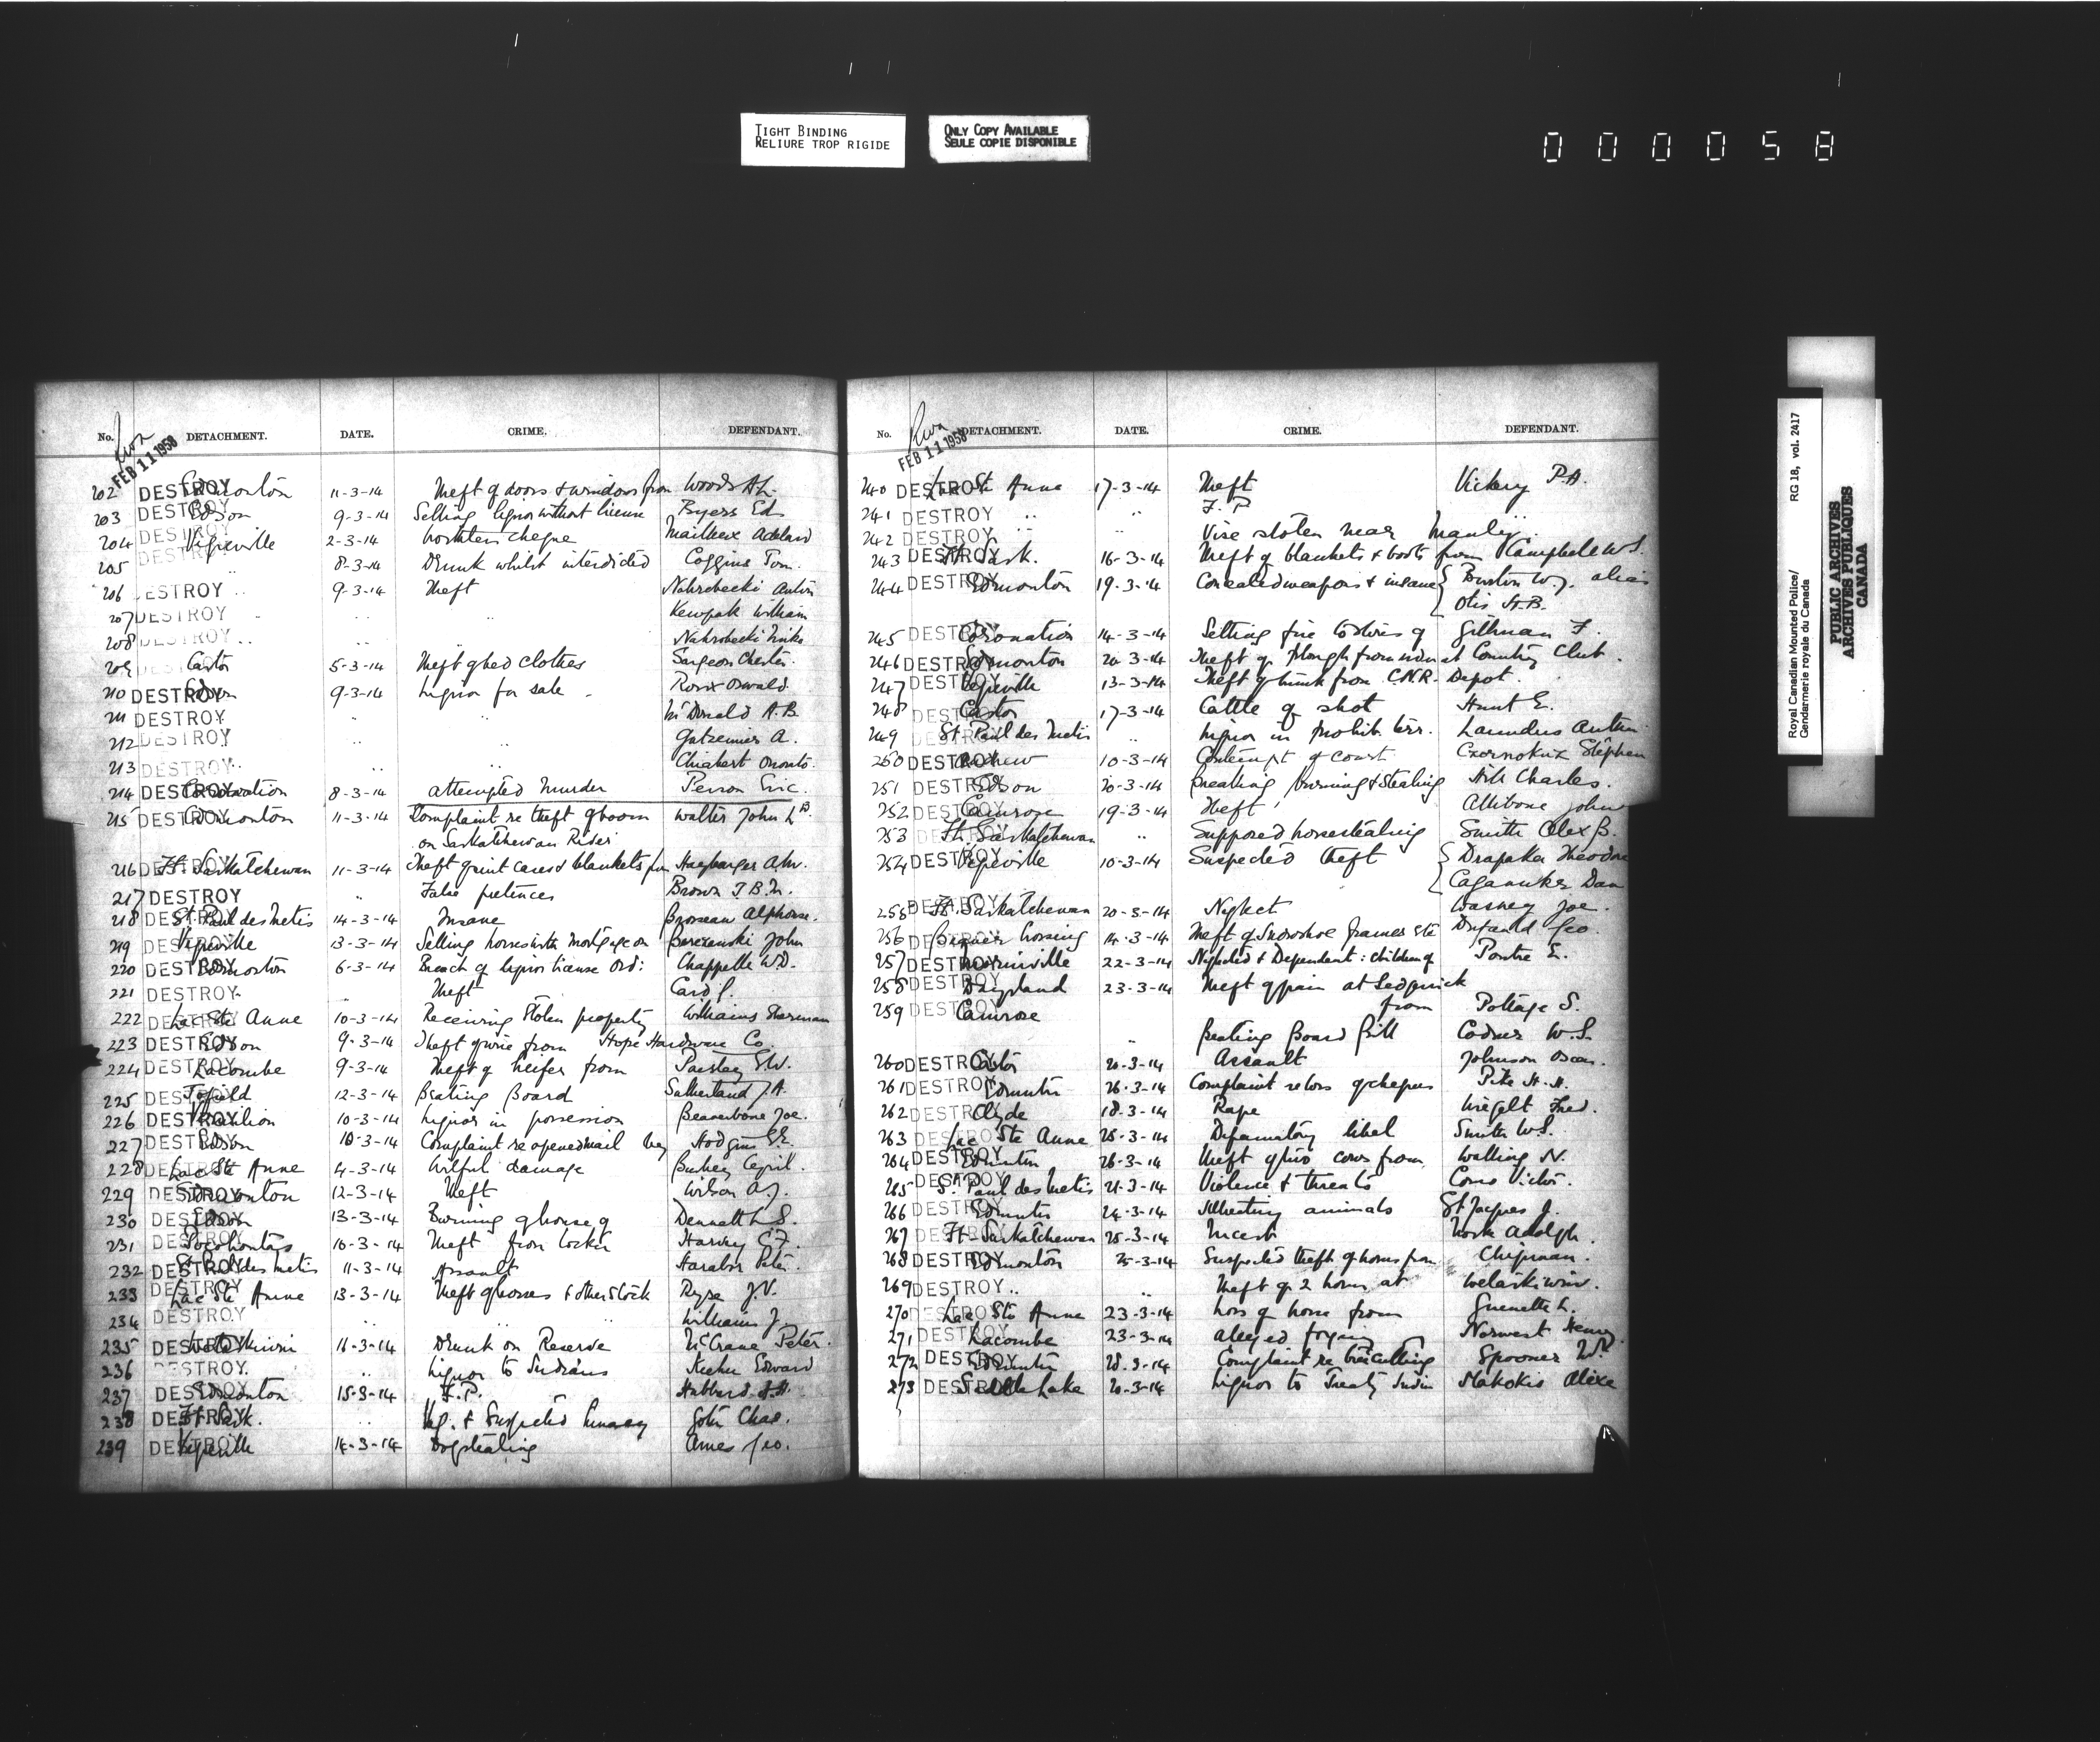 TIGHT BINDING
RELIURE TROP RIGIDE
ONLY COPY AVAILABLE
SEULE COPIE DISPONIBLE
000058
No. DETACHMENT. DATE. CRIME. DEFENDANT.
FEB 11 1958
202 DESTROY Edmonton 11-3-14 Theft of doors & windows from Woods A.L.
203 DESTROY Edson 9-3-14 Selling liquor without license Byers Ed
204 DESTROY Vegreville 2-3-14 Worthless cheque Mailleux Adelard
205 DESTROY " 8-3-14 Drunk whilst interdicted Coggins Tom.
206 DESTROY " 9-3-14 Theft Nahrebecki Anton
207 DESTROY " " " William
208 DESTROY " " " Nahrebecki
209 DESTROY Castor 5-3-14 Theft of bed clothes Surgeon Chester.
210 DESTROY Edson 9-3-14 Liquor for sale - Oswald
211 DESTROY " " McDonald A.B.
212 DESTROY " Gatzemier A.
213 DESTROY " " "
214 DESTROY Coronation 8-3-14 Attempted Murder Perron Eric.
215 DESTROY Edmonton 11-3-14 Complaint re theft of boom Walter John Ld
on Saskatchewan River
216 DESTROY Ft. Saskatchewan 11-3-14 Theft of suit cases & blankets from
217 DESTROY " False pretences Brown T.B.M.
218 DESTROY St. Paul des Metis 14-3-14 Insane Brosseau Alphonse.
219 DESTROY Vegreville 13-3-14 Selling horses with Mortgage on Berezanski John
220 DESTROY Edmonton 6-3-14 Breach of liquor license Ord: Chappelle W.D.
221 DESTROY " Theft Card J.
222 DESTROY Lac Ste Anne 10-3-14 Receiving Stolen property Williams Sherman
223 DESTROY Edson 9-3-14 Theft of wire from Hope Hardware Co.
224 DESTROY Lacombe 9-3-14 Theft of heifer from Paisley S.W.
225 DESTROY Tofield 12-3-14 Beating Board Sutherland J.A.
226 DESTROY Vermilion 10-3-14 Liquor in possession Beaverbone Joe.
227 DESTROY Edson 10-3-14 Complaint re opened mail by Hodgins
228 DESTROY Lac Ste Anne 4-3-14 Wilful damage Cyril.
229 DESTROY Edmonton 12-3-14 Theft Wilson A.J.
230 DESTROY Edson 13-3-14 Burning of house of Dennett L.S.
231 DESTROY Pocohontas 10-3-14 Theft from locker Harvey C.F.
232 DESTROY St. Paul des Metis 11-3-14 Assault Peter.
233 DESTROY Lac Ste Anne 13-3-14 Theft of horses & other stock J.V.
234 DESTROY " " " Williams J.
235 DESTROY Wetaskiwin 11-3-14 Drunk on Reserve McCrane Peter.
236 DESTROY " Liquor to Indians Edward
237 DESTROY Edmonton 15-3-14 F.P. Hubbard
238 DESTROY Ft Sask. " Vag. & Suspected Lunacy Chas.
239 DESTROY Vegreville 14-3-14 Dogstealing Ames Geo.
No. DETACHMENT. DATE. CRIME. DEFENDANT.
FEB 11 1958
240 DESTROY Lac Ste Anne 17-3-14 Theft Vickery P.A.
241 DESTROY " " F.P.
242 DESTROY " " Vise stolen near Manly.
243 DESTROY Ft Sask. 16-3-14 Theft of blankets & boots from Campbell W.S.
244 DESTROY Edmonton 19-3-14 Concealed weapons & insane Burton W.J. alias
Otis H.B.
245 DESTROY Coronation 14-3-14 Setting fire to stores of Gillman F.
246 DESTROY Edmonton 20-3-14 Theft of Plough from at Country Club.
247 DESTROY Vegreville 13-3-14 Theft of trunk from C.N.R. Depot.
248 DESTROY Castor 17-3-14 Cattle of shot Hunt E.
249 DESTROY St. Paul des Metis " Liquor in prohib. terr.
250 DESTROY Andrew 10-3-14 Contempt of Court Stephen
251 DESTROY Edson 20-3-14 Breaking, burning & Stealing Hill Charles.
252 DESTROY Camrose 19-3-14 Theft Allibone John
253 DESTROY Ft. Saskatchewan " Supposed horsestealing Smith Alex B.
254 DESTROY Vegreville 10-3-14 Suspected theft Drapaka Theodore
Dan
255 DESTROY Ft. Saskatchewan 20-3-14 Neglect Joe.
256 DESTROY 14-3-14 Theft of Snowshoe frames etc Geo.
257 DESTROY Morinville 22-3-14 Neglected & Dependent: children of Poutre E.
258 DESTROY Daysland 23-3-14 Theft of grain at Sedgwick
259 DESTROY Camrose from Pottage S.
" Beating Board Bill W.S.
260 DESTROY Castor 20-3-14 Assault Johnson Oscar.
261 DESTROY Edmonton 26-3-14 Complaint re loss of cheques Pike H.H.
262 DESTROY Clyde 18-3-14 Rape Fred.
263 DESTROY Lac Ste Anne 25-3-14 Defamatory libel Smith W.S.
264 DESTROY Edmonton 26-3-14 Theft of two cows from Walling N.
265 DESTROY St. Paul des Metis 21-3-14 Violence & threats Victor.
266 DESTROY Edmonton 24-3-14 Illtreating animals St Jacques J.
267 DESTROY Ft Saskatchewan 25-3-14 Incest Adolph.
268 DESTROY Edmonton 25-3-14 Suspected theft of horses from Chipman.
269 DESTROY " " Theft of 2 horses at Wetaskiwin.
270 DESTROY Lac Ste Anne 23-3-14 Loss of horse from Guenette L.
271 DESTROY Lacombe 23-3-14 Alleged forgery Norwest Henry.
272 DESTROY Edmonton 28-3-14 Complaint re Spooner
273 DESTROY Saddle Lake 20-3-14 Liquor to Treaty Indian Makokis Alexe
Royal Canadian Mounted Police/ RG 18, vol. 2417
Gendarmerie royale du Canada
PUBLIC ARCHIVES
ARCHIVES PUBLIQUES
CANADA